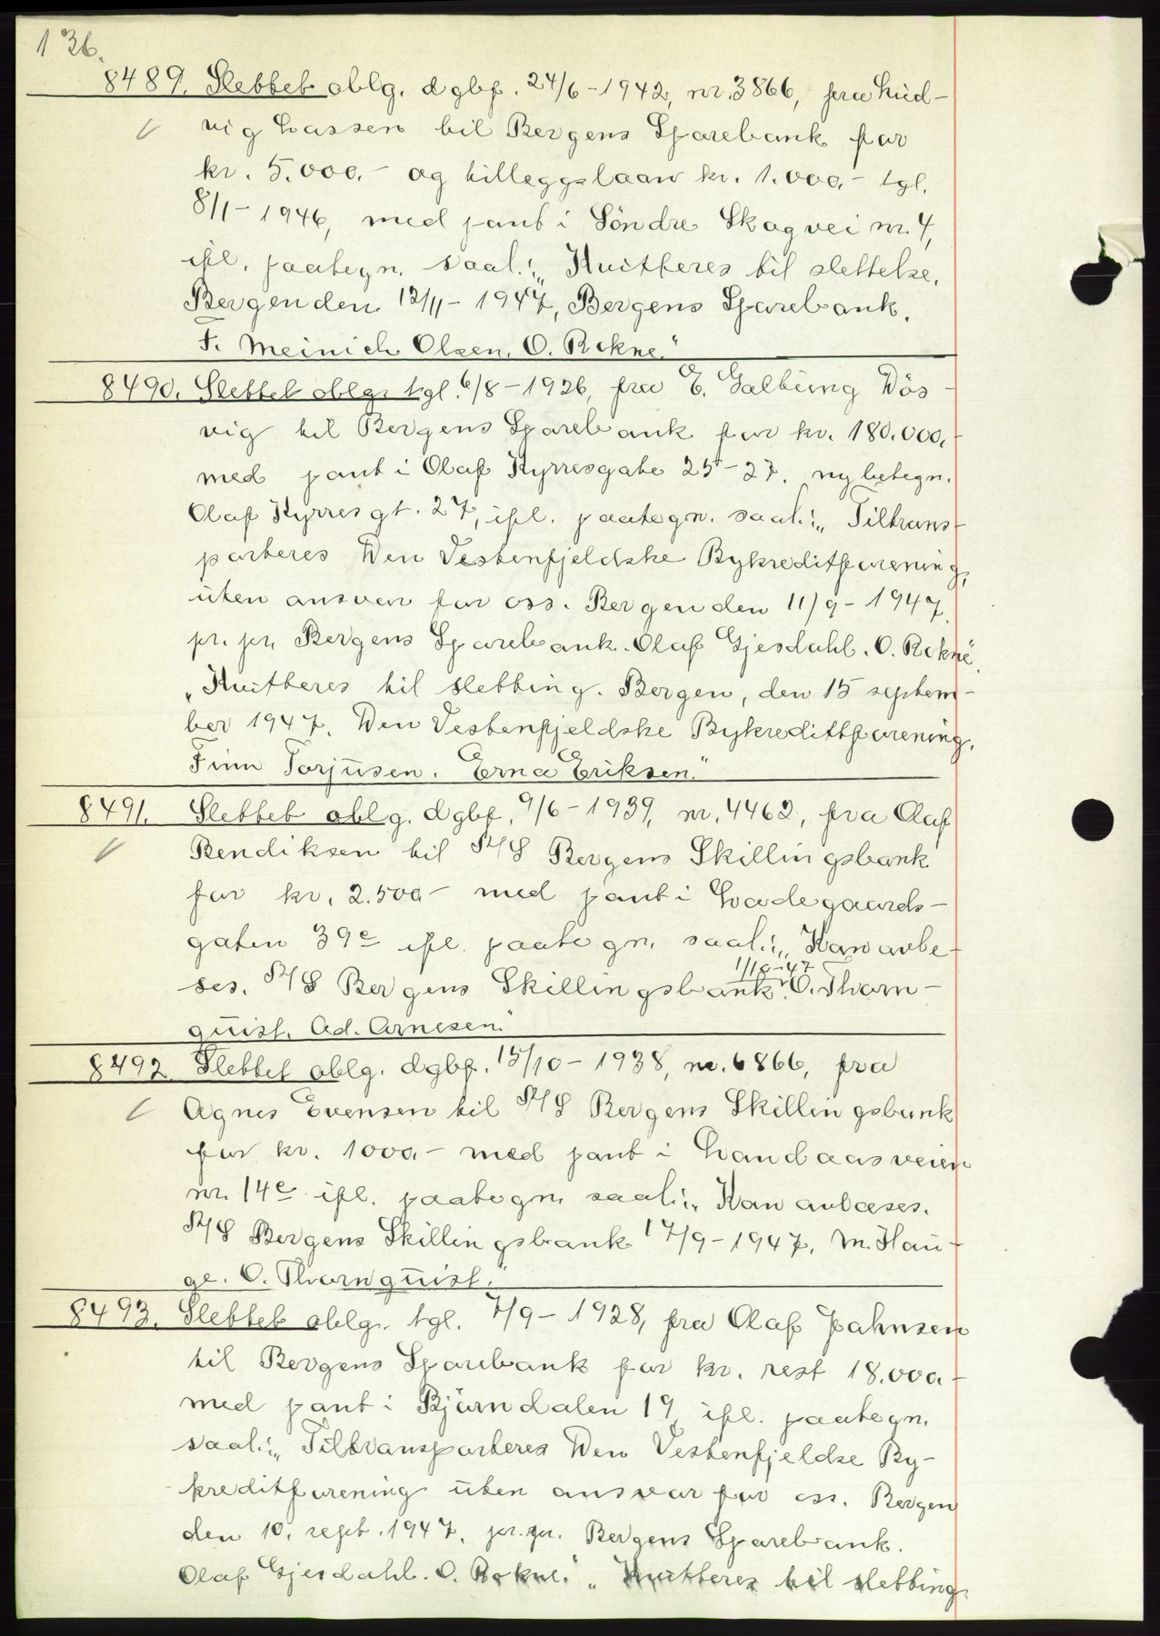 136.
8489. Slettet oblg. dgbf. 24/6-1942, nr. 3866, fra Lud-
vig Lassen til Bergens Sparebank for
kr. 5.000.- og tilleggslaan kr. 1.000.- tgl.
8/1-1946, med pant i Söndre Skogvei nr. 4,
ifl. paategn. saal.: „Kvitteres til slettelse.
Bergen den 12/11-1947, Bergens Sparebank.
F. Meinich Olsen. O. Rokne."
8490. Slettet oblg. tgl. 6/8-1926, fra E. Galtung Dös-
vig til Bergens Sparebank for kr. 180.000.-
med pant i Olaf Kyrresgate 25-27. ny betegn.
Olaf Kyrres gt. 27, ifl. paategn. saal.: „Tiltrans-
porteres Den Vestenfjeldske Bykreditforening,
uten ansvar for oss. Bergen den 11/9-1947.
pr. pr. Bergens Sparebank. Olaf Gjesdahl. O. Rokne".
„Kvitteres til sletting. Bergen, den 15 septem-
ber 1947. Den Vestenfjeldske Bykredittforening.
Finn Torjusen. Erna Eriksen."
8491. Slettet oblg. dgbf. 9/6-1939, nr. 4462, fra Olaf
Bendiksen til A/S Bergens Skillingsbank
for kr. 2.500.- med pant i Ladegaards-
gaten 39c ifl. paategn. saal.: „Kan avlæ-
ses. A/S Bergens Skillingsbank 1/10-47 O. Thorn-
quist. Ad. Arnesen."
8492. Slettet oblg. dgbf. 15/10-1938, nr. 6866, fra
Agnes Evensen til A/S Bergens Skillingsbank
for kr. 1000.- med pant i Landaasveien
nr. 14c ifl. paategn. saal.: „Kan avlæses.
A/S Bergens Skillingsbank 17/9-1947. M. Hau-
ge. O. Thornquist."
8493. Slettet oblg. tgl. 7/9-1928, fra Olaf Johnsen
til Bergens Sparebank for kr. rest 18.000.-
med pant i Björndalen 19, ifl. paategn.
saal.: „Tiltransporteres Den Vestenfjeldse By-
kreditforening uten ansvar for oss. Bergen
den 10. sept. 1947. pr. pr. Bergens Sparebank.
Olaf Gjesdahl. O. Rokne." „Kvitteres til sletting.